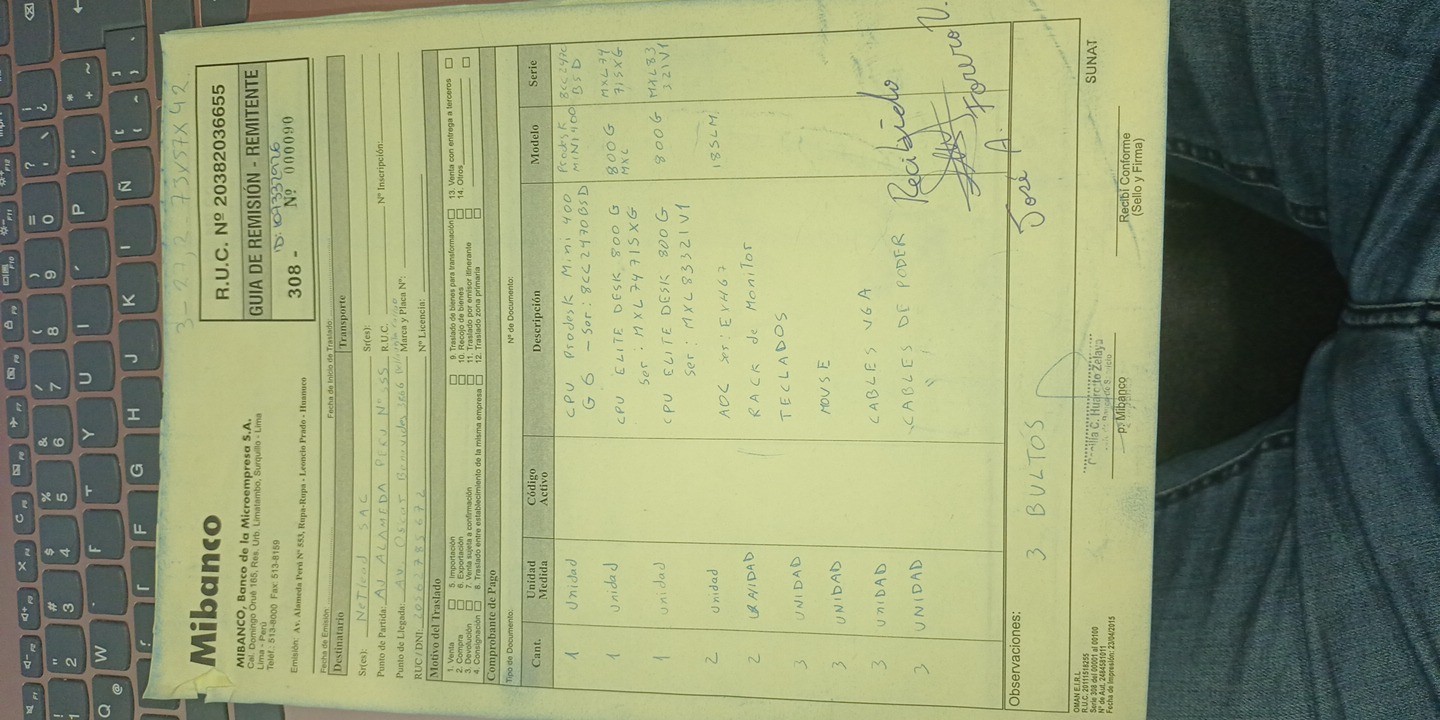 3 - 27,2 - 73x57x42
Mibanco
MIBANCO, Banco de la Microempresa S.A.
Cal. Domingo Orué 165, Res. Urb. Limatambo, Surquillo - Lima
Lima - Perú
Teléf.: 513-8000 Fax: 513-8159
Emisión: Av. Alameda Perú Nº 553, Rupa-Rupa - Leoncio Prado - Huanuco
R.U.C. Nº 20382036655
GUIA DE REMISIÓN - REMITENTE
308 - Nº 000090
Fecha de Emisión: Fecha de Inicio de Traslado:
Destinatario Transporte
Sr(es): Sr(es):
Punto de Partida: AV ALAMEDA PERU Nº R.U.C. Nº Inscripción:
Punto de Llegada: AV Marca y Placa Nº:
RUC / DNI: Nº Licencia:
Motivo del Traslado
1. Venta 5. Importación 9. Traslado de bienes para transformación 13. Venta con entrega a terceros
2. Compra 6. Exportación 10. Recojo de bienes 14. Otros
3. Devolución 7. Venta sujeta a confirmación 11. Traslado por emisor itinerante
4. Consignación 8. Traslado entre establecimiento de la misma empresa 12. Traslado zona primaria
Comprobante de Pago
Tipo de Documento: Nº de Documento:
Cant. Unidad Medida Código Activo Descripción Modelo Serie
1 Unidad CPU Prodesk Mini 400 G6 - Ser: 8CC2470BSD Prodesk MINI 400 8CC2470 BSD
1 Unidad CPU ELITE DESK 800 G Ser: MXL7471SXG 800 G MXL MXL74 71SXG
1 Unidad CPU ELITE DESK 800 G Ser: MXL83321V1 800 G MXL83 321V1
2 Unidad AOC ser: 185LM
2 UNIDAD RACK de Monitor
3 UNIDAD TECLADOS
3 UNIDAD MOUSE
3 UNIDAD CABLES VGA
3 UNIDAD CABLES DE PODER
Recibido
José A. Forero V.
Observaciones: 3 BULTOS
OMAN E.I.R.L.
R.U.C. 20111518255
Serie 308 del 00001 al 00100
Nº de Aut. 2484581011
Fecha de Impresión: 23/04/2015
p. Mibanco
Recibí Conforme
(Sello y Firma)
SUNAT